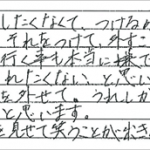 したくなくて、つけるか
それをつけて、外すこ
行く事も本当に嫌で
れたくない、と思い
を外せて。うれしか
と思います。
を見せて笑うことが出来